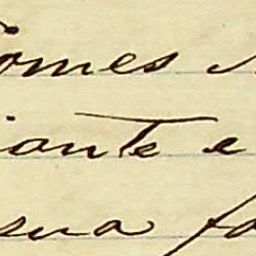 omes
iante e
sua fa